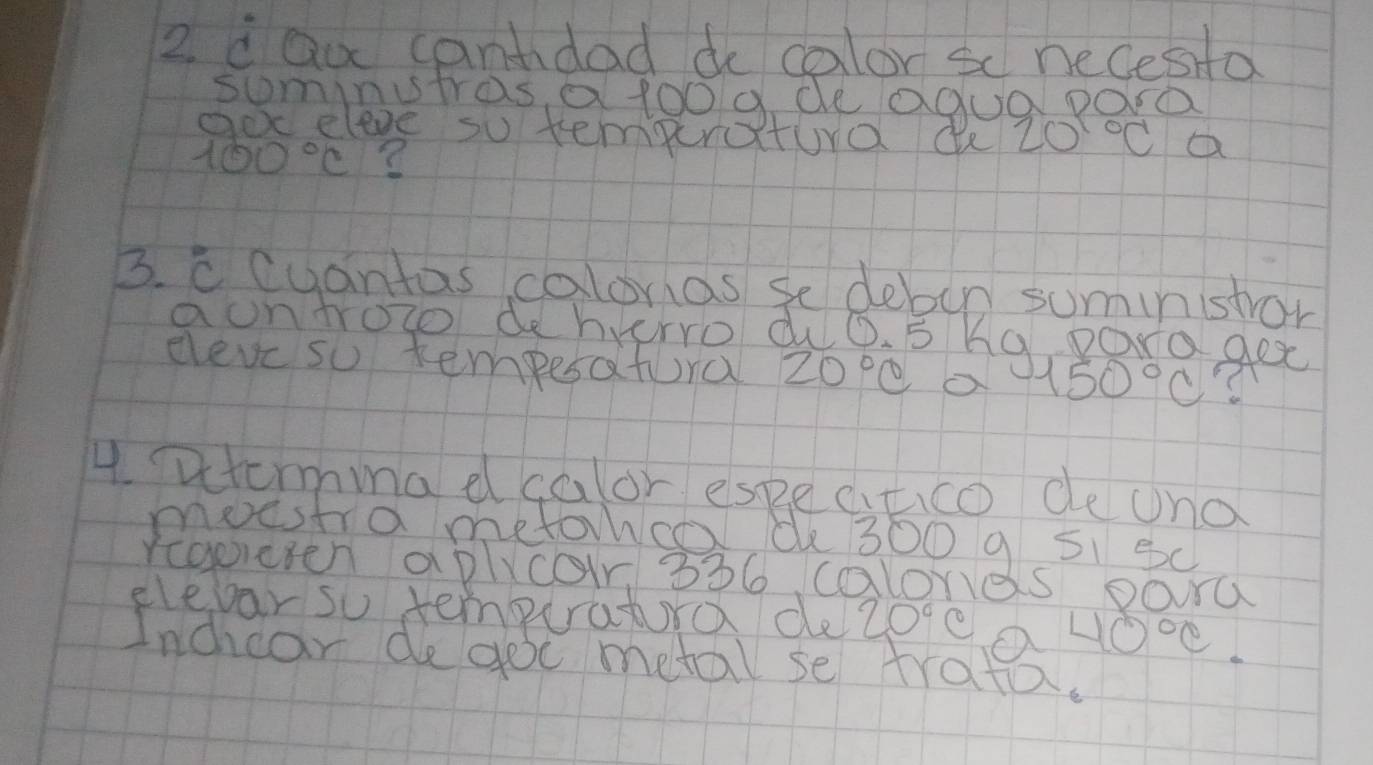 2. ¿ Que cantidad de calor se necesita
suministras, a 100 g de agua para
que eleve su temperatura de 20°C a
100°C ?
3. ¿ Cuantas calorias se deben suministrar
a un trozo de hierro de 0.5 Kg para que
eleve su temperatura 20°C a 150°C ?
4. Determina el calor especifico de una
muestra metalica de 300 g si se
requieren aplicar 336 calorias para
elevar su temperatura de 20°C a 40°C.
Indicar de que metal se trata.